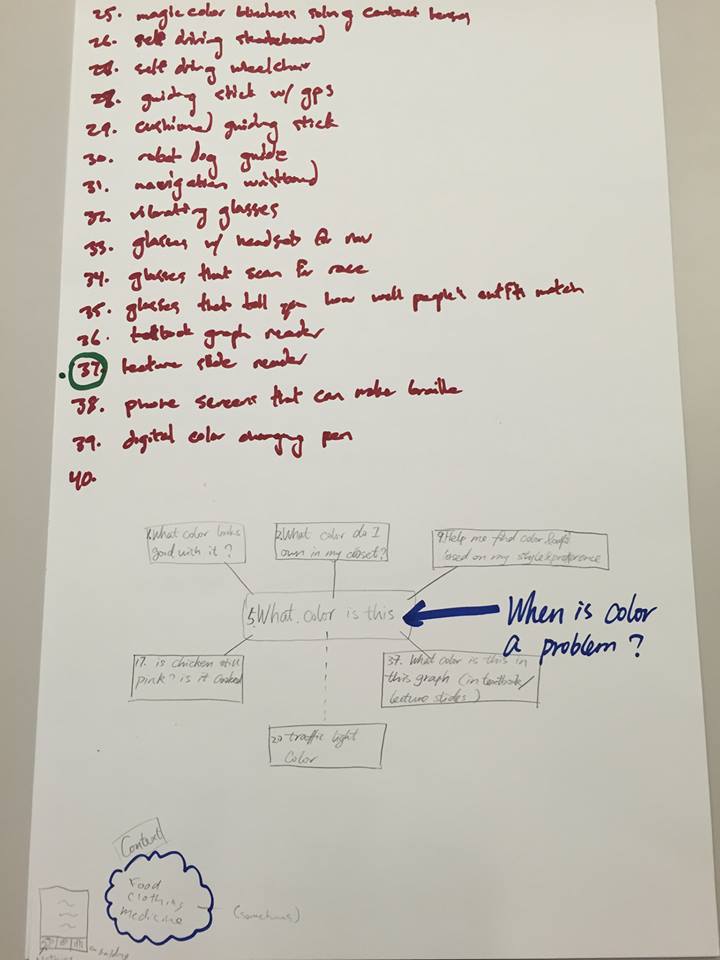 25. magic color blindness solving contact lenses
26. self driving skateboard
28. self driving wheelchair
28. guiding stick w/ gps
29. cushioned guiding stick
30. robot dog guide
31. navigation wristband
32. vibrating glasses
33. glasses w/ headset for nav
34. glasses that scan for race
35. glasses that tell you how well people's outfits match
36. textbook graph reader
37. lecture slide reader
38. phone screens that can make braille
39. digital color changing pen
40.
1. What color looks
good with it?
2. What color do I
own in my closet?
9. Help me find color
based on my style & preference
5. What color is this
When is color
a problem?
17. is chicken still
pink? is it cooked
37. What color is this in
this graph (in textbook/
lecture slides)
20. traffic light
color
Context
Food
clothing
medicine